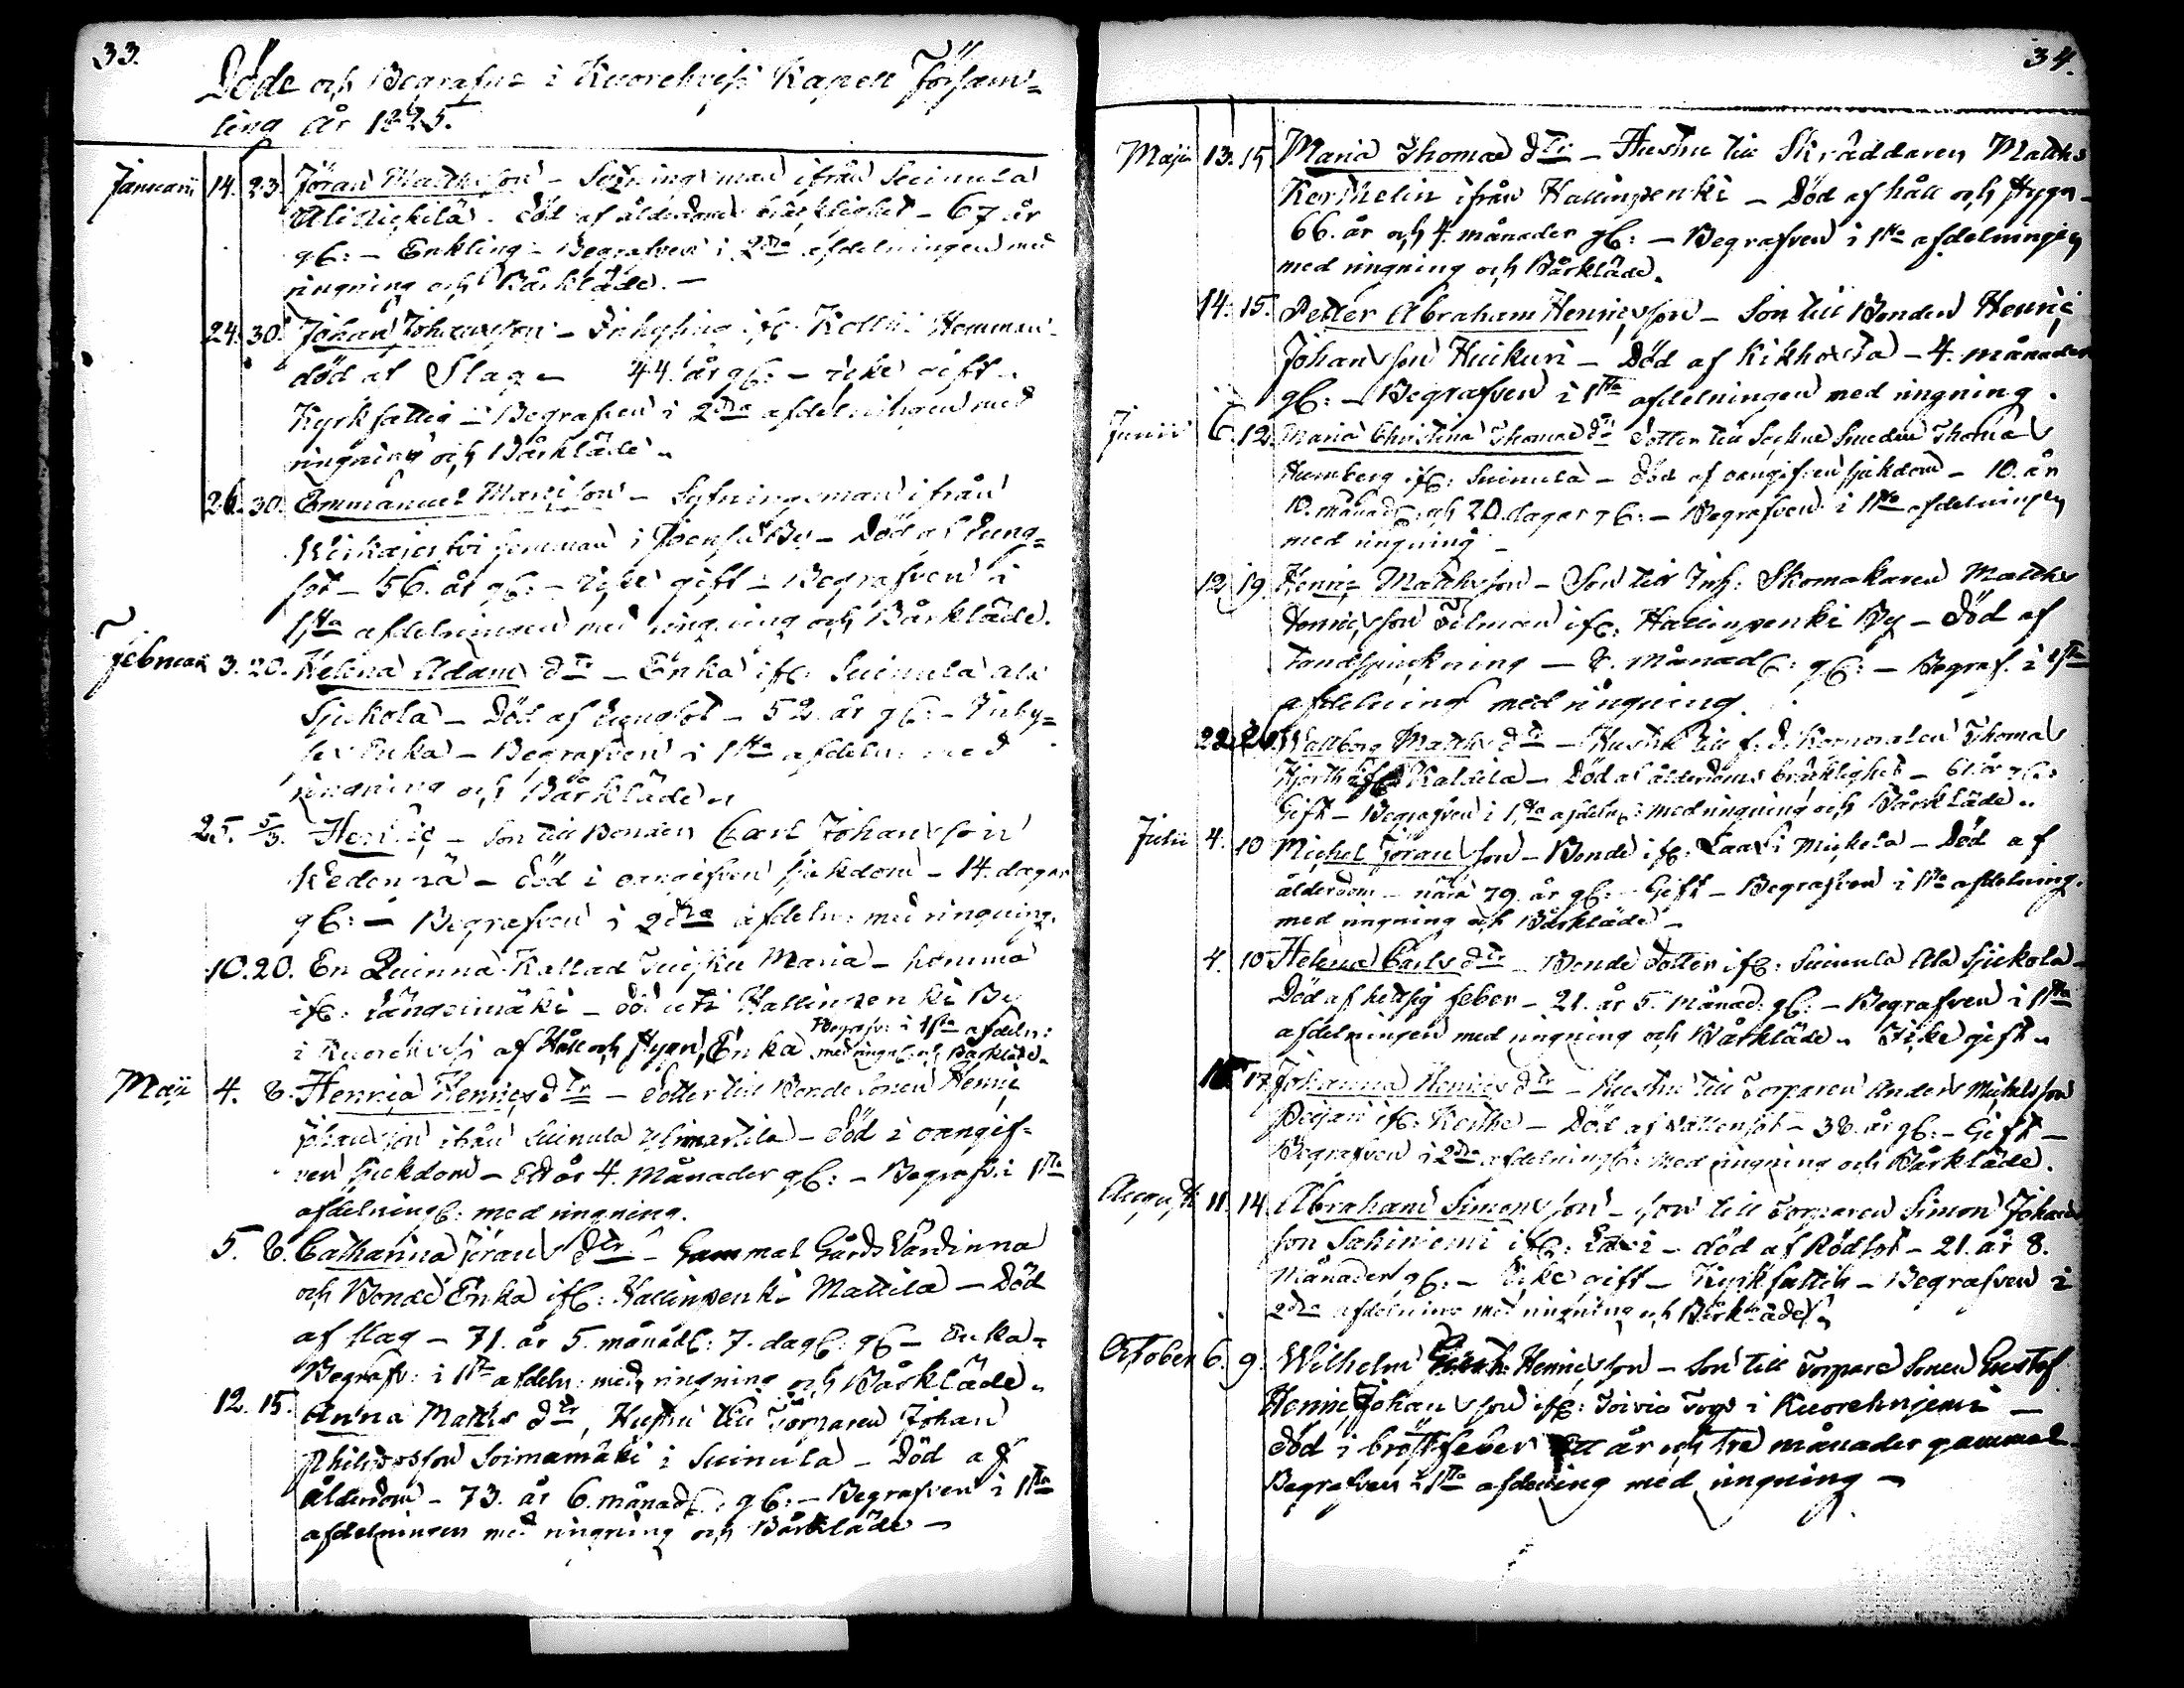 33.
Döde och Begrafne i Kuorehvesi Kapell Församl=
ling år 1825.
Januarii 14. 23. Jöran Matthsson - Sytningsman ifrån Suinula
Ali död af ålderdoms bräcklighet - 67 år
gl: - Enkling - Begrafven i 2dra afdelningen med
ringning och Bårkläde. -
24. 30. Johan Johansson - Inhysing ifr: Hemman
död af Slag - 44 år gl: - icke gift -
Kyrkfattig - Begrafven i 2dra afdelningen med
ringning och Bårkläde.
26. 30. Emmanuel - Sytningsman ifrån
hemman i By - Död af Lung=
sot - 56. år gl: - icke gift - Begrafven i
1sta afdelningen med ringning och Bårkläde.
Februarii 3. 20. Helena Adams dtr - Enka ifr: Suinula ala
Sjukola - Död af Lungsot - 52 år gl: - Inhy=
ses Enka - Begrafven i 1sta afdeln: med
ringning och Bårkläde.
25. 5/3. Henric - son till Bonden Carl Johansson
- död i oangifven sjukdom - 14. dagar
gl: - Begrafven i 2dra afdeln: med ringning.
10. 20. En Quinna Kallad Maria - hemma
ifr: Längelmäki - död uti Hallinpenki By
i Kuorehvesi af Håll och Stygn, Enka Begrafv: i 1sta afdeln:
med ringn: och Bårkläde.
Maji 4. 8. Henrica Henrics dtr - dotter till Bonde Sonen Henric
Johansson ifrån Suinula - död i oangif=
ven sjukdom - Ett år 4. Månader gl: - Begrafv: i 1sta
afdelning: med ringning.
5. 8. Catharina Jörans dtr - Gammal Gårds Värdinna
och Bonde Enka ifr: Hallinpenki Mattila - Död
af slag - 71. år 5. månad: 7. dag: gl - Enka -
Begrafv: i 1sta afdeln: med ringning och Bårkläde.
12. 15. Anna Matts dtr, Hustru till Torparen Johan
Philipsson Soimamäki i Suinula - Död af
ålderdom - 73. år 6. månad: gl: - Begrafven i 1sta
afdelningen med ringning och Bårkläde -
34.
Maji 13. 15. Maria Thomas dtr - Hustru till Skräddaren Matths
ifrån Hallinpenki - Död af håll och stygn -
66. år och 4. månader gl: - Begrafven i 1sta afdelningen
med ringning och Bårkläde.
14. 15. Petter Abraham Henricsson - Son till Bonden Henric
Johansson Huikuri - Död af Kikhosta - 4. månader
gl: - Begrafven i 1sta afdelningen med ringning.
Junii 6. 12. Maria Christina Thomas dtr dotter till Sockne Smeden Thomas
Humberg ifr: Suinula - död af oangifven sjukdom - 10. år
10. månad: och 20. dagar gl: - Begrafven i 1sta afdelningen
med ringning -
12. 19 Henric Matthsson - Son till Inh: Skomakaren Matths
Henricsson ifr: Hallinpenki By - Död af
Tandsprickning - 8. månad: gl: - Begraf. i 1sta
afdelning med ringning.
22. 26. Wallborg Matths dtr - Hustru till f. d. Korporalen Thomas
Hjorth ifr: - Död af ålderdoms bräcklighet - 61. år gl:
Gift - Begrafven i 1sta afdeln: med ringning och Bårkläde.
Julii 4. 10 Michel Jöransson - Bonde ifr: Mickola - Död af
ålderdom - nära 79. år gl: - Gift - Begrafven i 1sta afdelning.
med ringning och Bårkläde -
4. 10 Helena Carls dtr - Bonde dotter ifr: Suinula Ala Sjukola -
Död af hetsig feber - 21. år 5. månad: gl: - Begrafven i 1sta
afdelningen med ringning och Bårkläde. Icke gift.
17. Johanna Henrics dtr - Hustru till Torparen Anders Michelsson
ifr: - Död af Vattensot - 38. år gl: - Gift -
Begrafven i 2dra afdelning: med ringning och Bårkläde.
Augusti 11. 14. Abraham Simonsson - son till Torparen Simon Johans
son Sahiniemi ifr: - död af Rödsot - 21. år 8.
Månader gl: - Icke gift - Kyrkfattig - Begrafven i
2dra afdelning med ringning och Bårkläde.
October 6. 9. Wilhelm Henricsson - Son till Torpare Sonen Gustof
Henric Johansson ifr: Torp i Kuorehniemi -
död i bröstfeber Ett år och tre månader gammal -
Begrafven i 1sta afdelning med ringning -